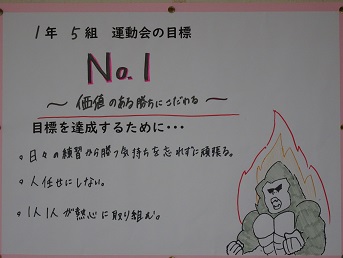 1年 5組 運動会の目標
No.1
～ 価値のある勝ちにこだわる ～
目標を達成するために・・・
。日々の練習から勝つ気持ちを忘れずに頑張る。
。人任せにしない。
。1人1人が熱心に取り組む。